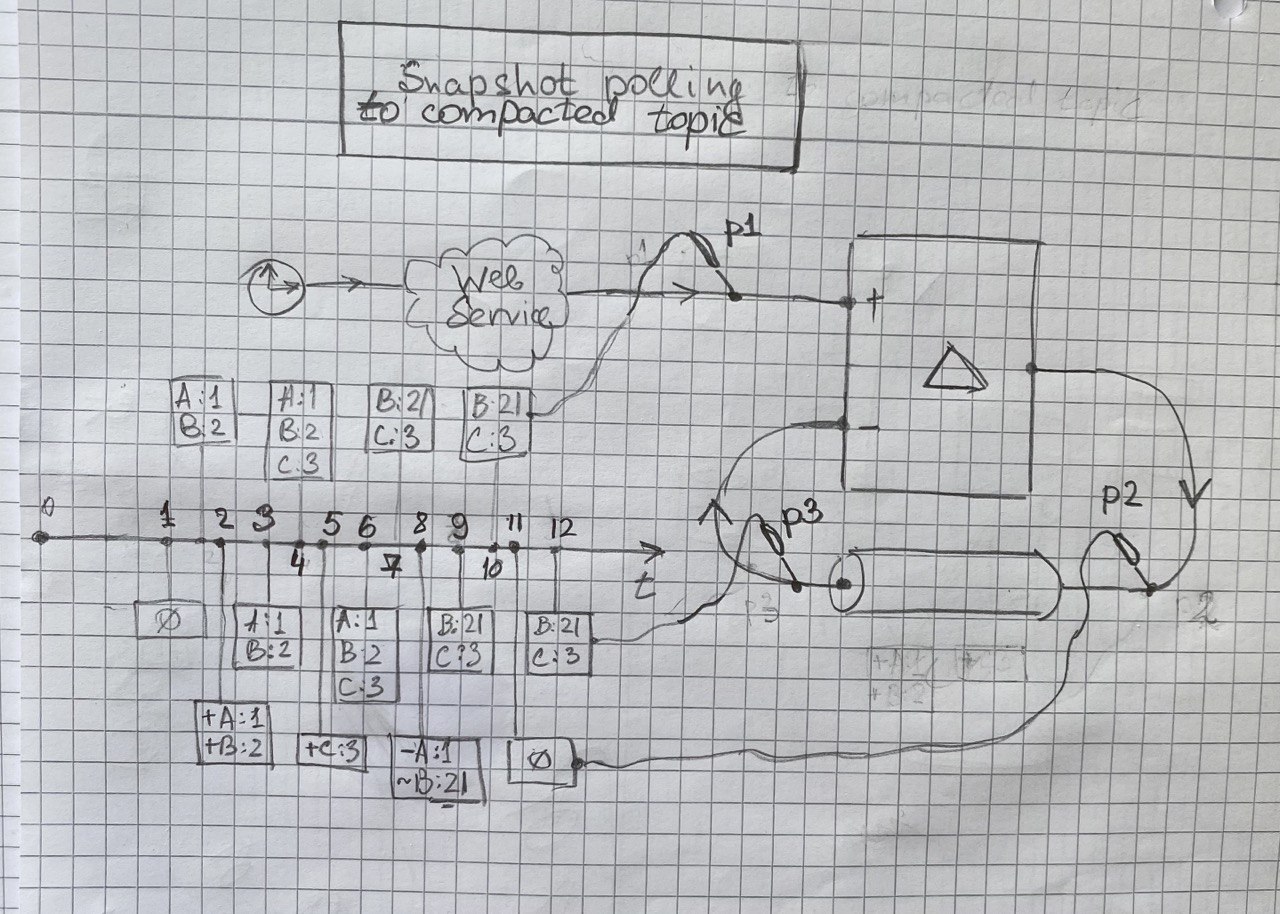 Snapshot polling
to compacted topic
p1
Web
Service
+
Δ
-
A:1
B:2
A:1
B:2
C:3
B:21
C:3
B:21
C:3
p2
p3
0
1
2
3
4
5
6
7
8
9
10
11
12
t
∅
A:1
B:2
A:1
B:2
C:3
B:21
C:3
B:21
C:3
+A:1
+B:2
+C:3
-A:1
~B:21
∅